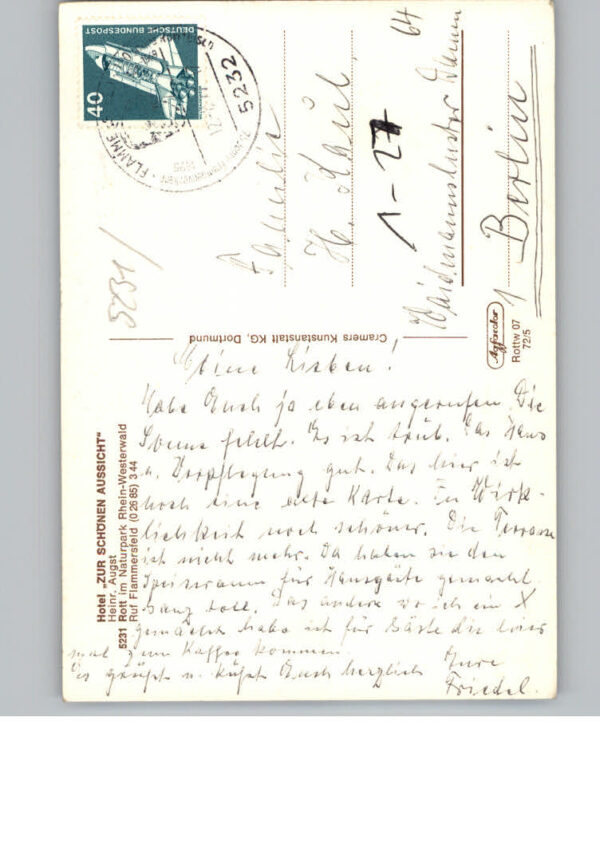 Hotel „ZUR SCHÖNEN AUSSICHT"
Heinr. Augst
5231 Rott im Naturpark Rhein-Westerwald
Ruf Flammersfeld (0 26 85) 3 44
Cramers Kunstanstalt KG, Dortmund
Agfacolor
Rottw 07
72/5
DEUTSCHE BUNDESPOST
40
5232 FLAMME
5231/
Familie
H. Kaul
1-27
Waidmannsluster Damm 64
1 Berlin
Meine Lieben!
Habe Euch ja eben angerufen. Die
Sonne fehlt. Es ist trüb. Das Haus
u. Verpflegung gut. Das hier ist
noch eine alte Karte. In Wirk-
lichkeit noch schöner. Die Terrasse
ist nicht mehr. Da haben sie den
Speiseraum für Hausgäste gemacht.
Ganz toll. Das andere wo ich ein X
gemacht habe ist für Gäste die hier
mal zum Kaffee kommen.
Es grüßt u. küßt Euch herzlich
Eure
Friedel.